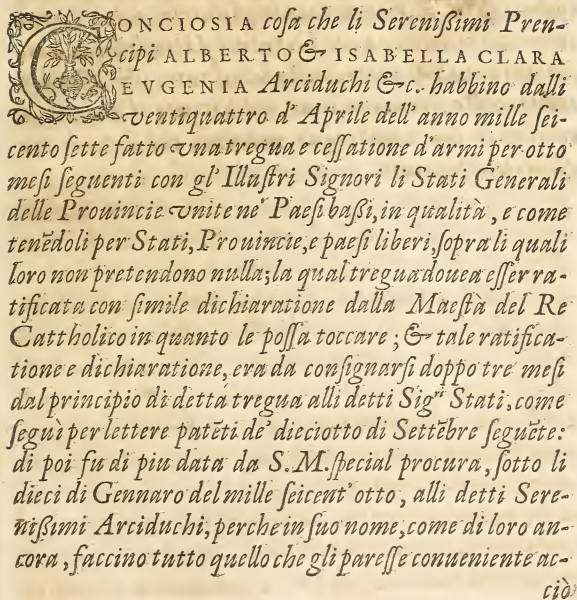 CONCIOSIA cosa che li Serenißimi Pren-
cipi ALBERTO & ISABELLA CLARA
EVGENIA Arciduchi &c. habbino dalli
ventiquattro d'Aprile dell'anno mille sei-
cento sette fatto vna tregua e cessatione d'armi per otto
mesi seguenti con gl'Illustri Signori li Stati Generali
delle Prouincie vnite ne' Paesi baßi, in qualità, e come
tenẽdoli per Stati, Prouincie, e paesi liberi, sopra li quali
loro non pretendono nulla; la qual tregua douea esser ra-
tificata con simile dichiaratione dalla Maestà del Re
Cattholico in quanto le possa toccare; & tale ratifica-
tione e dichiaratione, era da consignarsi doppo tre mesi
dal principio di detta tregua alli detti Sig.ri Stati, come
seguì per lettere patẽti de' dieciotto di Settẽbre seguẽte:
di poi fu di piu data da S.M. special procura, sotto li
dieci di Gennaro del mille seicent'otto, alli detti Sere-
nißimi Arciduchi, perche in suo nome, come di loro an-
cora, faccino tutto quello che gli paresse conueniente ac-
ciò